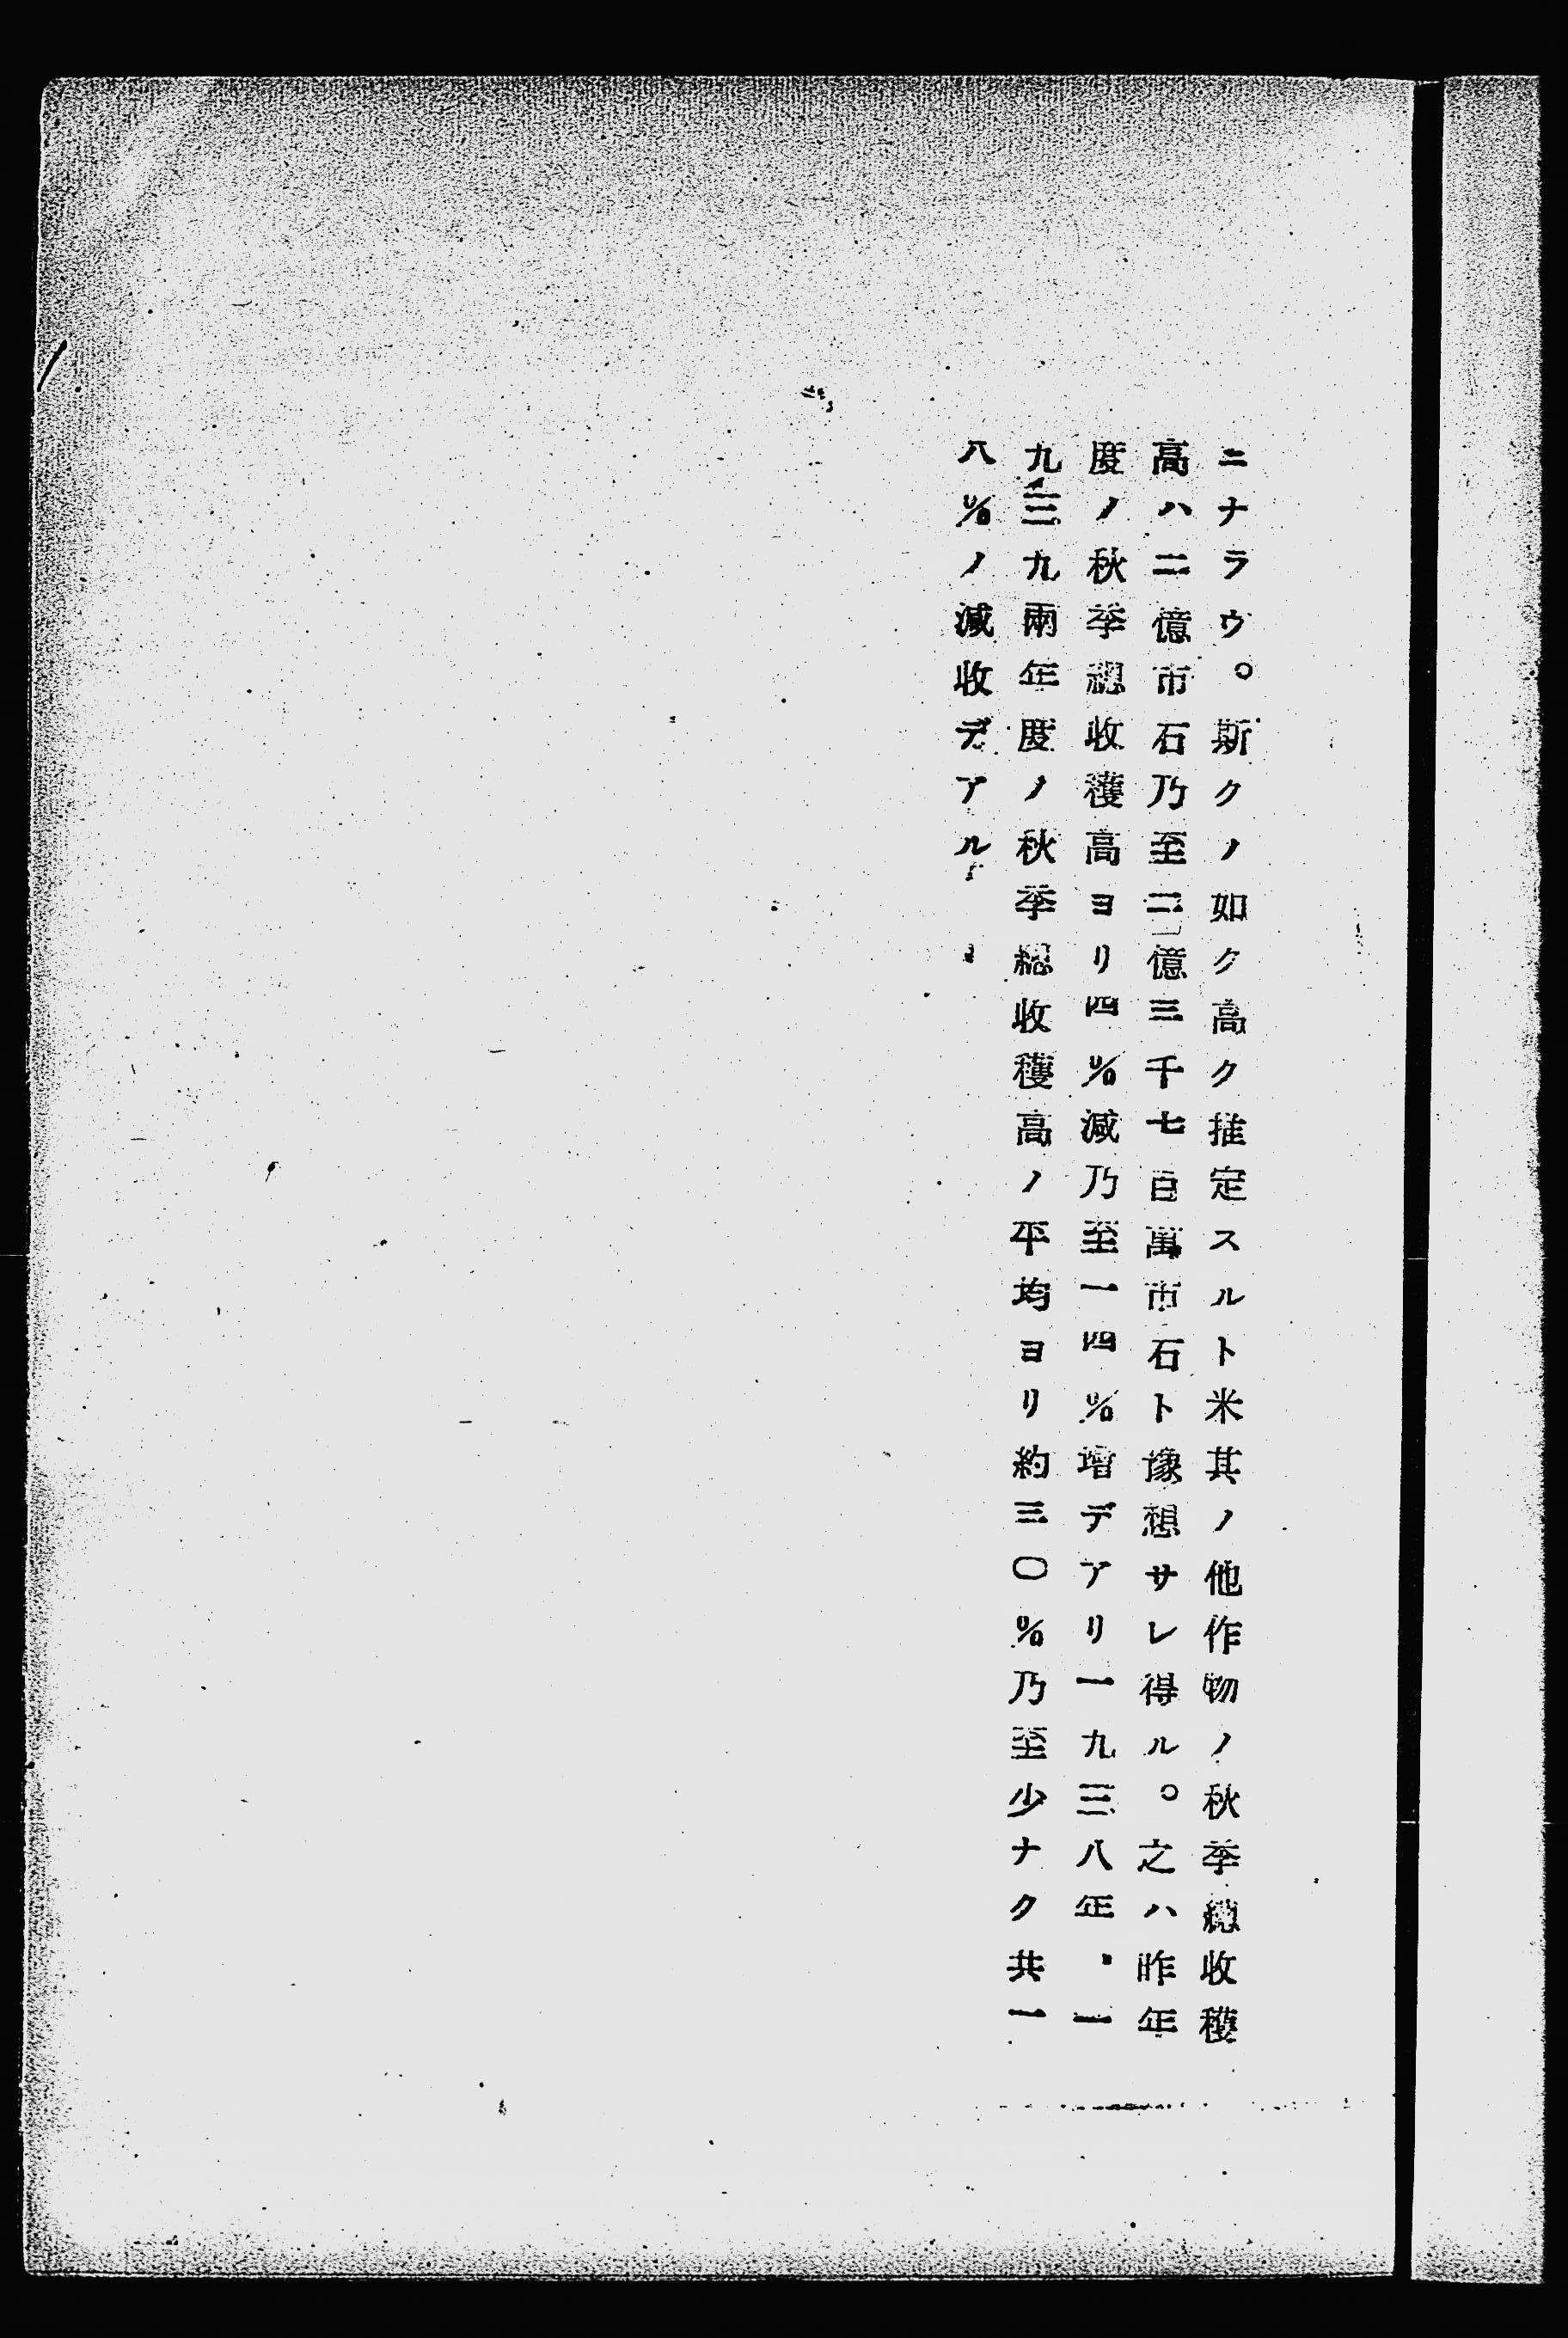 ニナラウ。斯クノ如ク高ク推定スルト米其ノ他作物ノ秋季總收穫
高ハ二億市石乃至二億三千七百萬市石ト豫想サレ得ル。之ハ昨年
度ノ秋季總收穫高ヨリ四%減乃至一四%增デアリ一九三八年、一
九三九兩年度ノ秋季總收穫高ノ平均ヨリ約三〇%乃至少ナク共一
八%ノ減收デアル